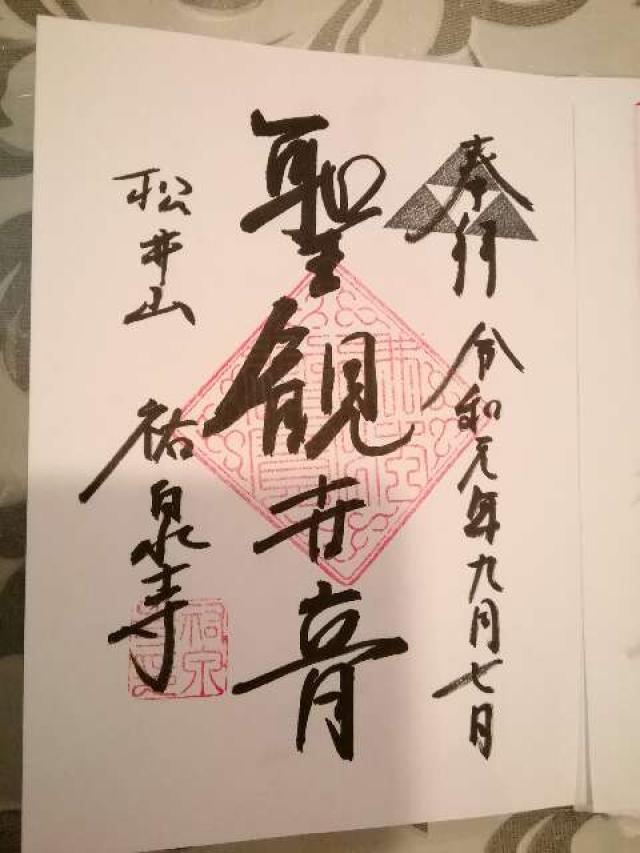 奉拝
令和元年九月七日
聖観世音
松井山
祐泉寺